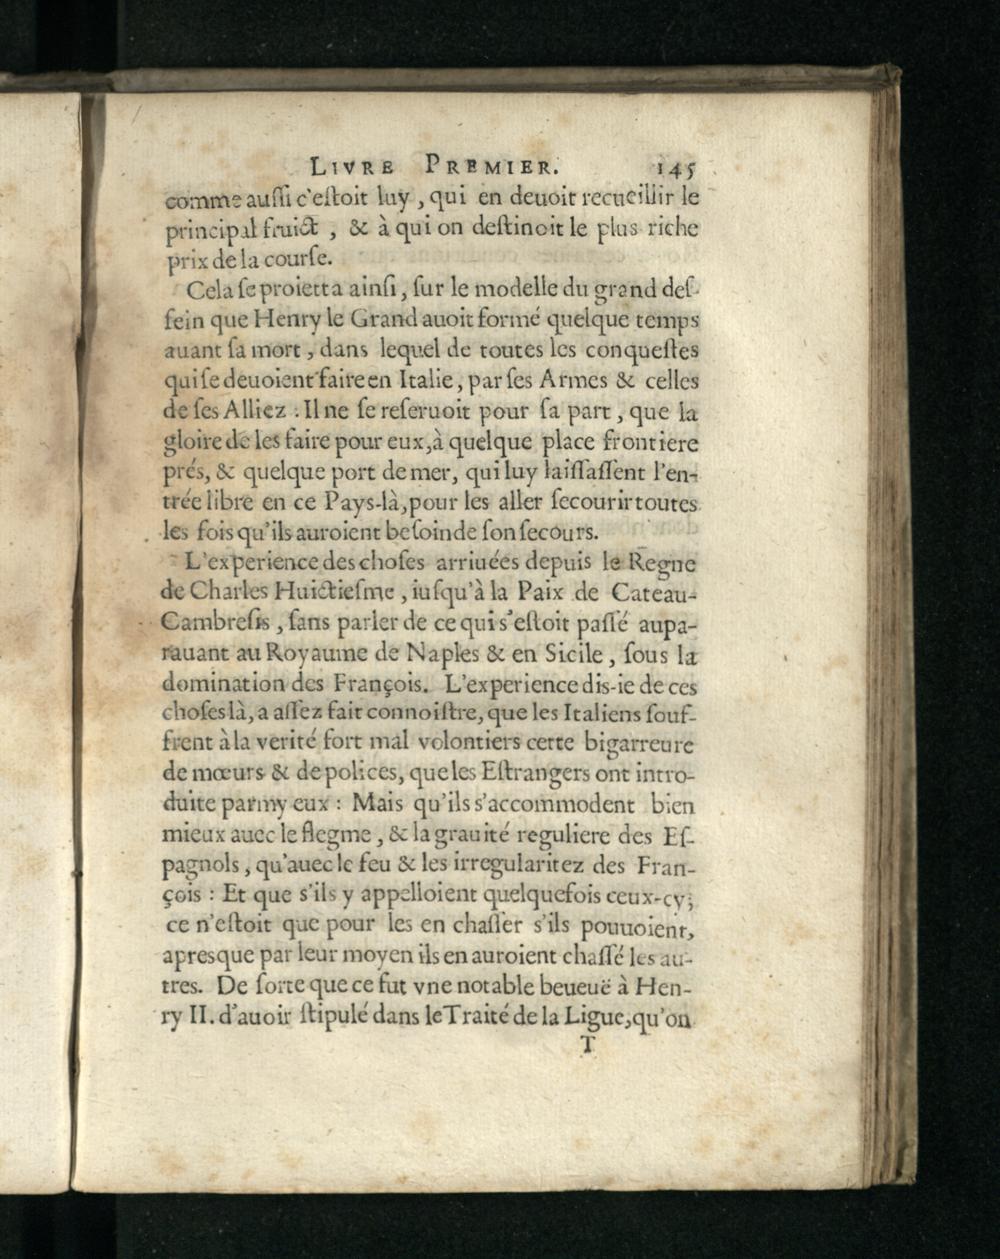 LIVRE PREMIER. 145
comme auſſi c'eſtoit luy, qui en deuoit recueillir le
principal fruict, & à qui on deſtinoit le plus riche
prix de la courſe.
Cela ſe proietta ainſi, ſur le modelle du grand deſ-
ſein que Henry le Grand auoit formé quelque temps
auant ſa mort, dans lequel de toutes les conqueſtes
qui ſe deuoient faire en Italie, par ſes Armes & celles
de ſes Alliez. Il ne ſe reſeruoit pour ſa part, que la
gloire de les faire pour eux, à quelque place frontiere
prés, & quelque port de mer, qui luy laiſſaſſent l'en-
trée libre en ce Pays-là, pour les aller ſecourir toutes
les fois qu'ils auroient beſoin de ſon ſecours.
L'experience des choſes arriuées depuis le Regne
de Charles Huictieſme, iuſqu'à la Paix de Cateau-
Cambreſis, ſans parler de ce qui s'eſtoit paſſé aupa-
rauant au Royaume de Naples & en Sicile, ſous la
domination des François. L'experience dis-ie de ces
choſes là, a aſſez fait connoiſtre, que les Italiens ſouf-
frent à la verité fort mal volontiers cette bigarreure
de mœurs & de polices, que les Eſtrangers ont intro-
duite parmy eux : Mais qu'ils s'accommodent bien
mieux auec le flegme, & la grauité reguliere des Eſ-
pagnols, qu'auec le feu & les irregularitez des Fran-
çois : Et que s'ils y appelloient quelquefois ceux-cy;
ce n'eſtoit que pour les en chaſſer s'ils pouuoient,
apres que par leur moyen ils en auroient chaſſé les au-
tres. De ſorte que ce fut vne notable beueuë à Hen-
ry II. d'auoir ſtipulé dans le Traité de la Ligue, qu'on
T